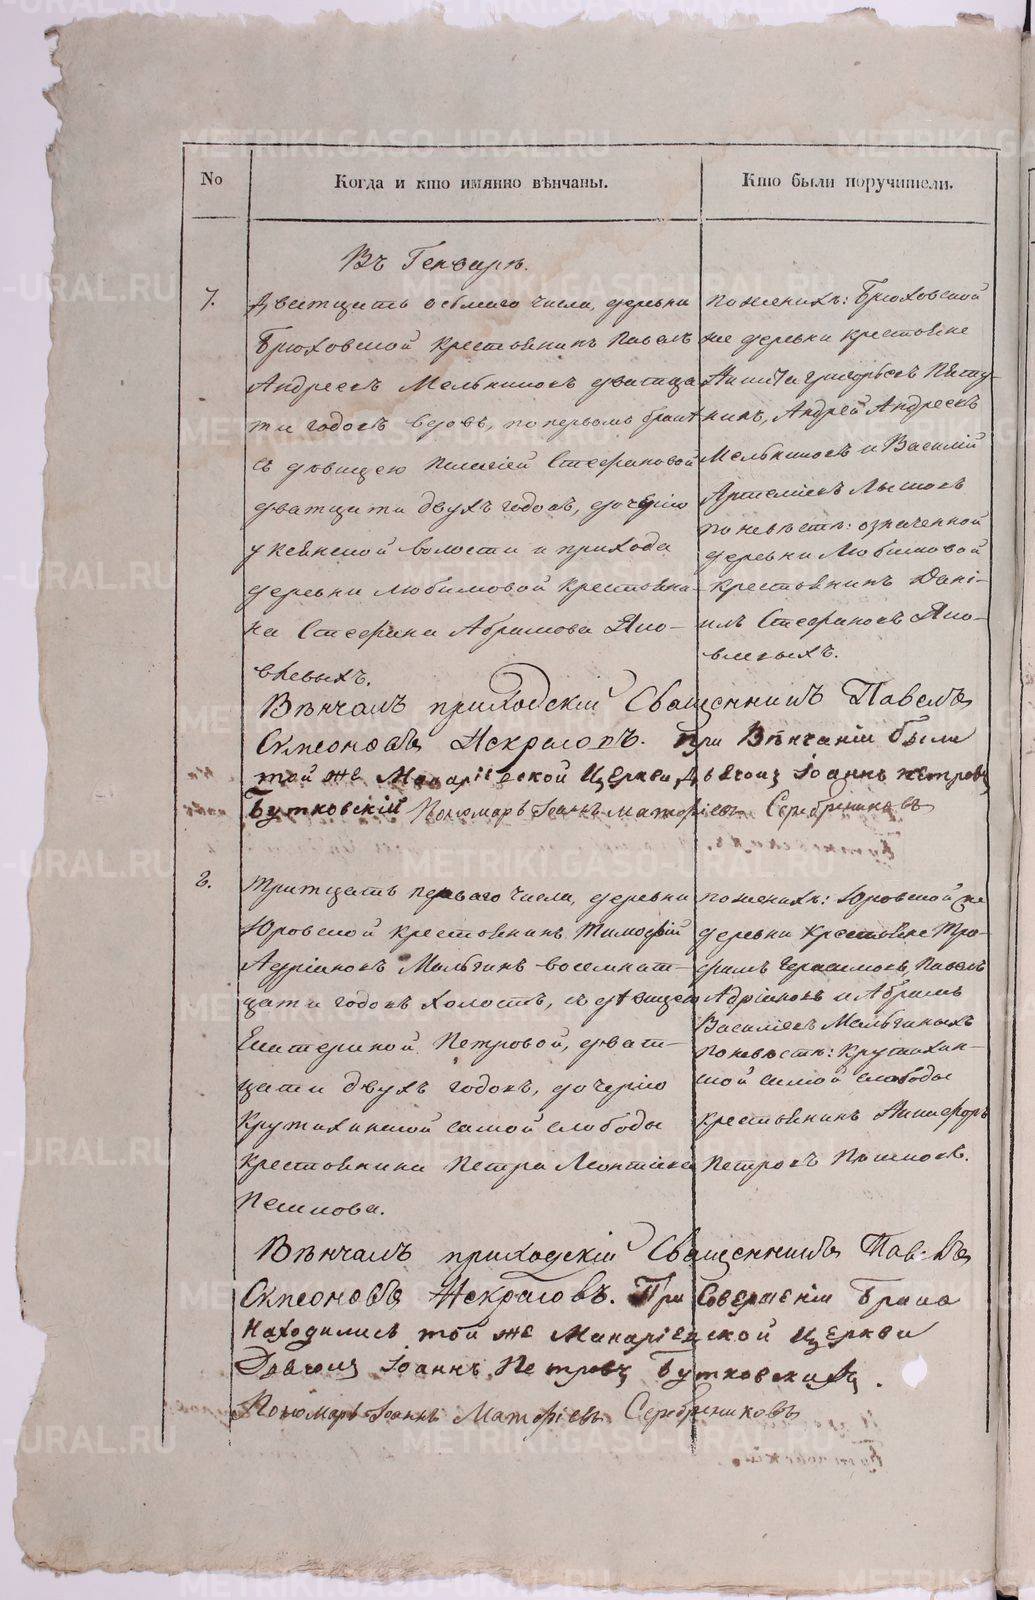 No
Когда и кто имянно вѣнчаны.
Кто были поручители.
Въ Генварѣ.
7.
Дватцать осьмаго числа, деревни
Брюховской крестьянинъ Павелъ
Андреевъ Мельниковъ дватца
ти годовъ вдовъ, по первомъ бракѣ
съ дѣвицею Пелагіей Стефановой
дватцати двухъ годовъ, дочерію
волости и прихода
деревни Любимовой крестьяни-
на Стефана Абрамова Яко-
влевыхъ.
по женихѣ: Брюховской
же деревни крестьяне
Никита Григорьевъ
нинъ, Андрей Андреевъ
Мельниковъ и Василій
Артеміевъ
по невѣстѣ: означенной
деревни Любимовой
крестьянинъ Дані-
илъ Стефановъ Яко-
влевыхъ.
Вѣнчалъ приходскій Священникъ Павелъ
Симеоновъ Некрасовъ. При Вѣнчаніи были
той же Макаріевской Церкви Дьячокъ Іоаннъ Петровъ
Бутковскій Пономарь Іоаннъ Матѳіевъ Серебрениковъ
8.
Тритцать перваго числа, деревни
Юровской крестьянинъ Тимофей
Адріановъ Мальгинъ восемнат-
цати годовъ холостъ, съ дѣвицею
Екатериной Петровой, дват-
цати двухъ годовъ, дочерію
Крутихинской самой слободы
крестьянина Петра Леонтіева
по женихѣ: Юровской же
деревни крестьяне Тро-
фимъ Герасимовъ, Павелъ
Адріановъ и Абрамъ
Василіевъ Мальгиныхъ
по невѣстѣ: Крутихин-
ской самой слободы
крестьянинъ Никифоръ
Петровъ
Вѣнчалъ приходскій Священникъ Павелъ
Симеоновъ Некрасовъ. При Совершеніи Брака
Находились той же Макаріевской Церкви
Дьячокъ Іоаннъ Петровъ Бутковскихъ.
Пономарь Іоаннъ Матѳіевъ Серебрениковъ
METRIKI.GASO-URAL.RU